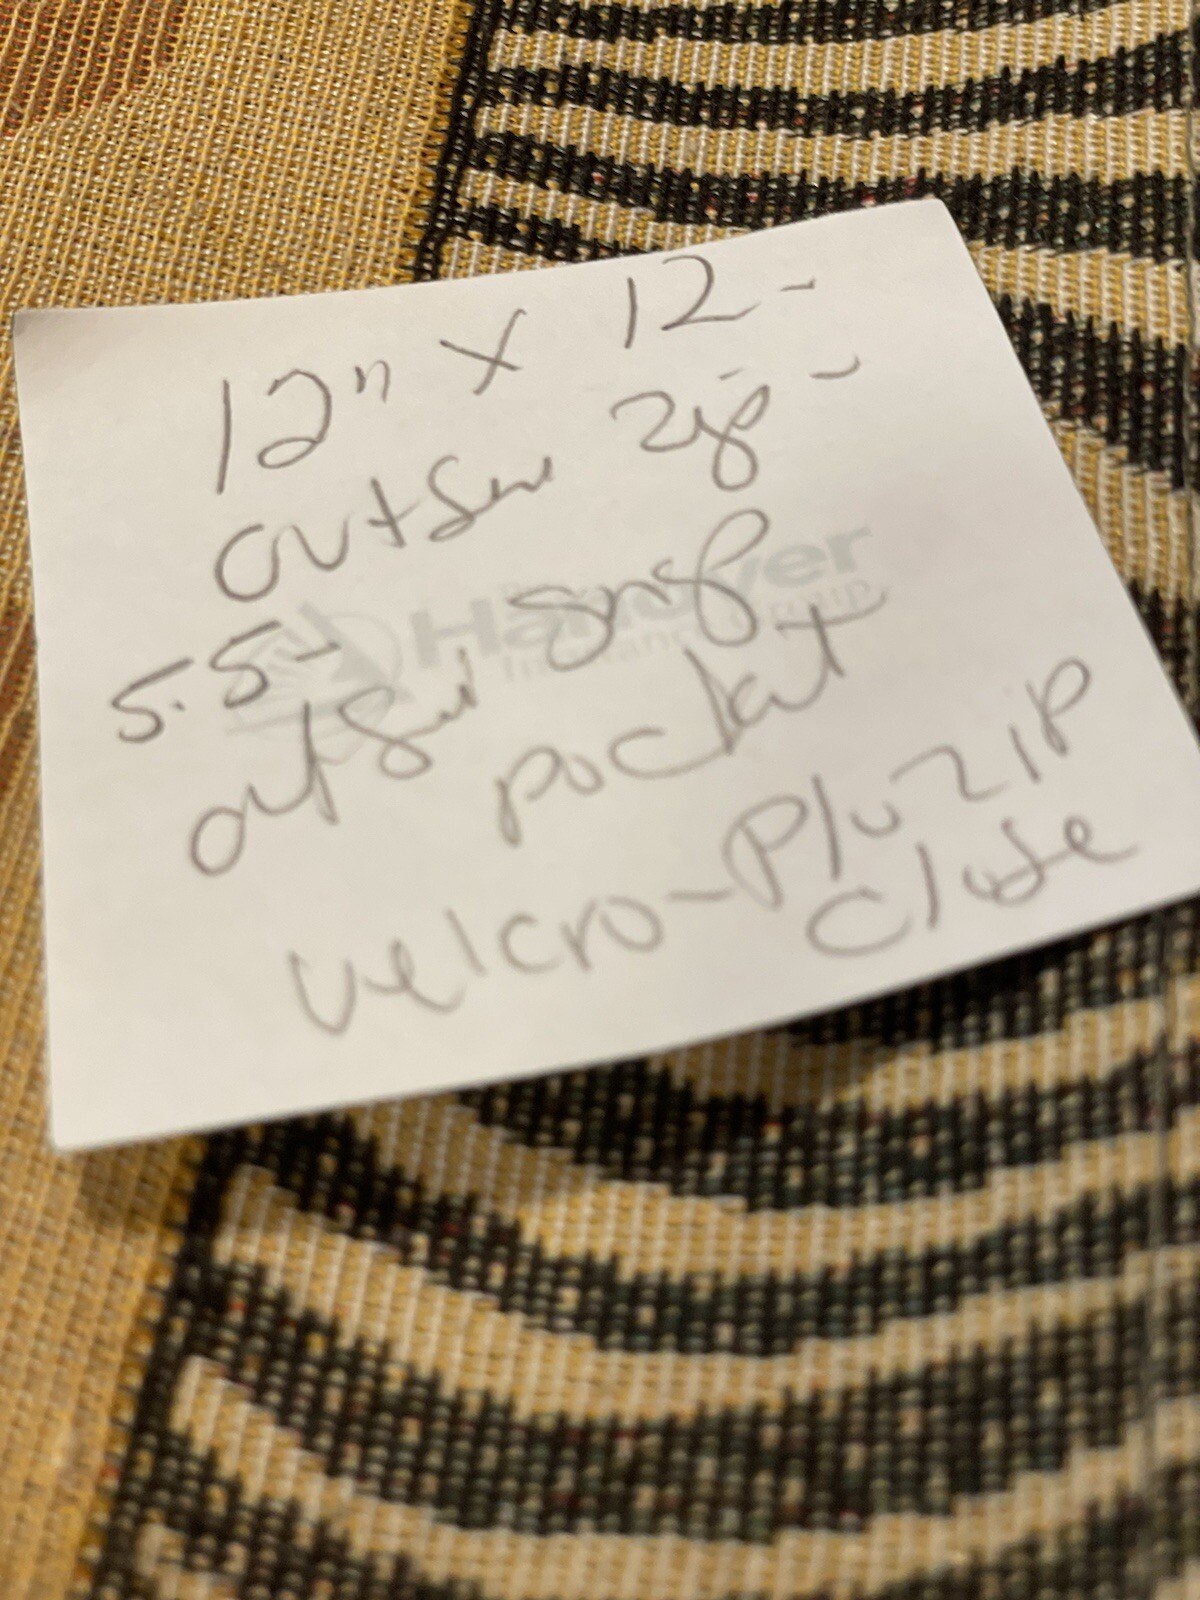 12" x 12-
outside zip -
5.5-
outside snap
pocket
velcro-Plu zip
close
Hanover
Insurance Group